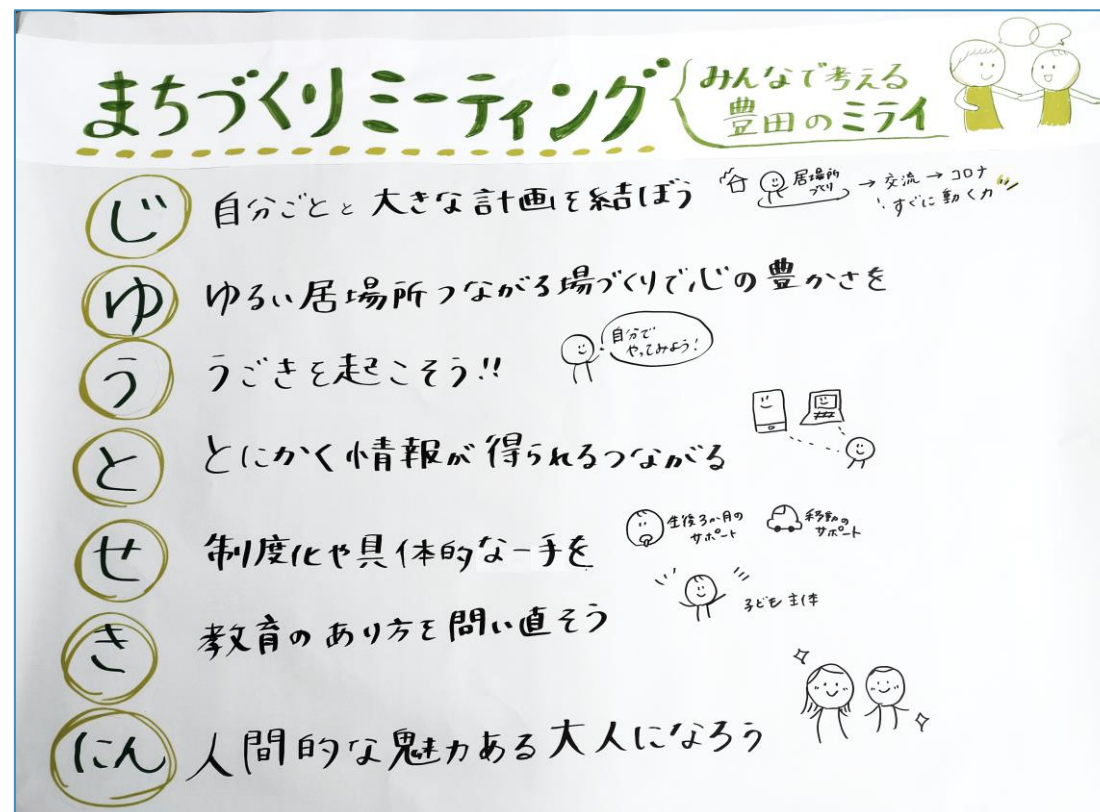 まちづくりミーティング
みんなで考える
豊田のミライ
じ 自分ごとと大きな計画を結ぼう
居場所
づくり
→ 交流 → コロナ
すぐに動く力
ゆ ゆるい居場所つながる場づくりで心の豊かさを
う うごきを起こそう!!
自分で
やってみよう!
と とにかく情報が得られるつながる
せ 制度化や具体的な一手を
生後3か月の
サポート
移動の
サポート
き 教育のあり方を問い直そう
子ども主体
にん 人間的な魅力ある大人になろう